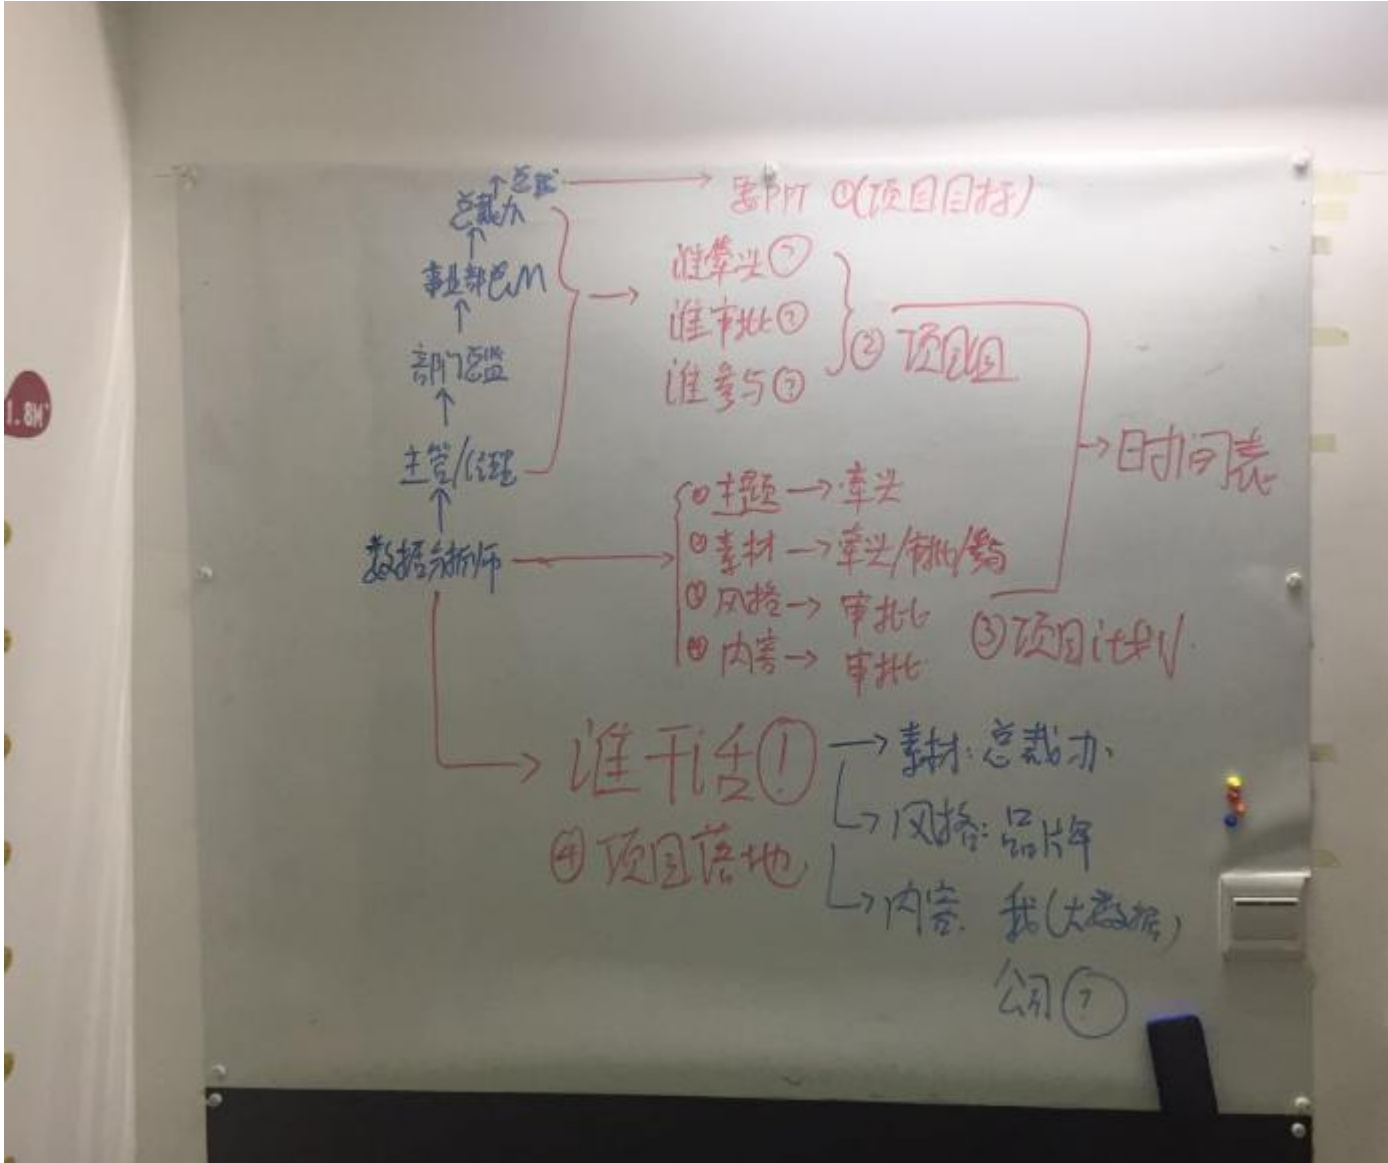 1.8M
总裁 → 要PPT ①(项目目标)
↑
总裁办
↑
事业部总M
↑
部门总监
↑
主管/经理
↑
数据分析师
→ 谁牵头?
谁审批?
谁参与?
② 项目组
→ 时间表
→ ①主题 → 牵头
②素材 → 牵头/审批/参与
③风格 → 审批
④内容 → 审批
③项目计划
→ 谁干活!
④项目落地
→ 素材: 总裁办
→ 风格: 品牌
→ 内容: 我(大数据)
公司?